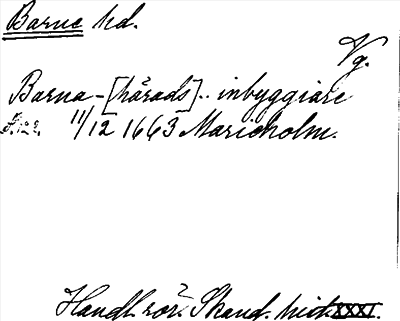 Barne hd.
Vg.
Barna-[härads]-inbyggiare
11/12 1663 Marieholm.
Handl. rör. Skand. hist. XXXI.